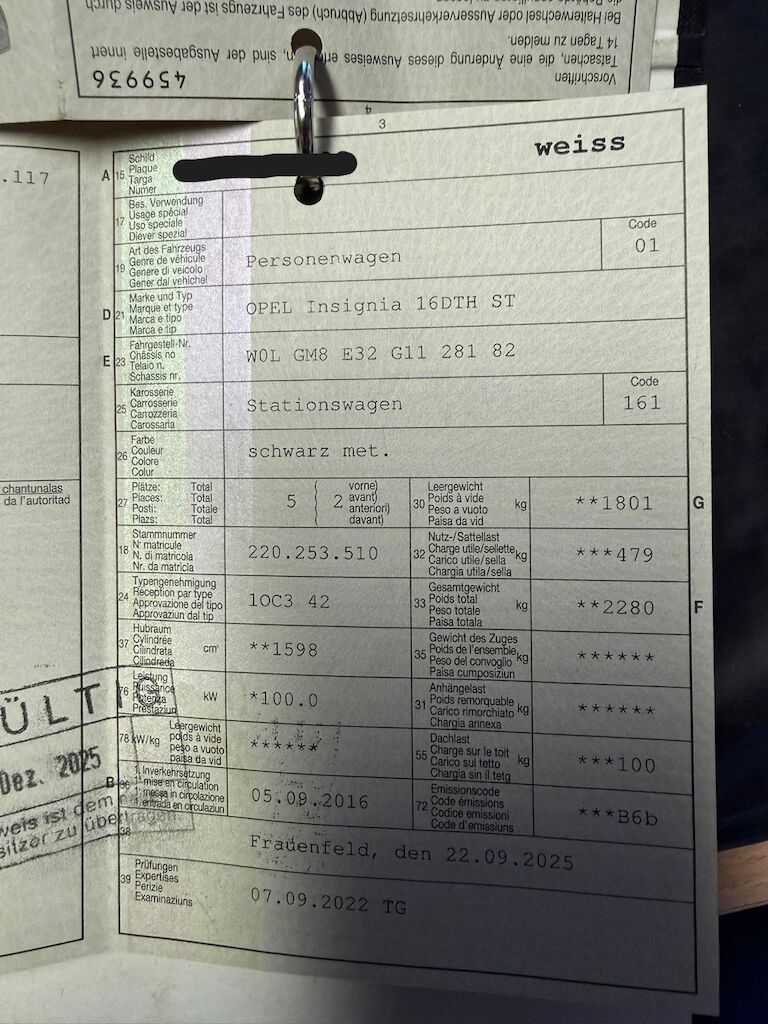 459936
Vorschriften
Tatsachen, die eine Änderung dieses Ausweises sind der Ausgabestelle innert
14 Tagen zu melden.
Bei Halterwechsel oder Ausserverkehrsetzung (Abbruch) des Fahrzeugs ist der Ausweis durch
4
3
.117
chantunalas
da l'autoritad
ÜLTIG
Dez. 2025
weis ist dem
sitzer zu übertragen
A 15 Schild
Plaque
Targa
Numer
weiss
17 Bes. Verwendung
Usage spécial
Uso speciale
Diever spezial
19 Art des Fahrzeugs
Genre de véhicule
Genere di veicolo
Gener dal vehichel
Personenwagen
Code
01
D 21 Marke und Typ
Marque et type
Marca e tipo
Marca e tip
OPEL Insignia 16DTH ST
E 23 Fahrgestell-Nr.
Châssis no
Telaio n.
Schassis nr.
W0L GM8 E32 G11 281 82
25 Karosserie
Carrosserie
Carrozzeria
Carossaria
Stationswagen
Code
161
26 Farbe
Couleur
Colore
Colur
schwarz met.
27 Plätze: Total
Places: Total
Posti: Totale
Plazs: Total
5 ( 2 vorne)
avant)
anteriori)
davant)
30 Leergewicht
Poids à vide
Peso a vuoto
Paisa da vid
kg
**1801
G
18 Stammnummer
N° matricule
N. di matricola
Nr. da matricla
220.253.510
32 Nutz-/Sattellast
Charge utile/sellette
Carico utile/sella
Chargia utila/sella
kg
***479
24 Typengenehmigung
Réception par type
Approvazione del tipo
Approvaziun dal tip
1OC3 42
33 Gesamtgewicht
Poids total
Peso totale
Paisa totala
kg
**2280
F
37 Hubraum
Cylindrée
Cilindrata
Cilindrada
cm³
**1598
35 Gewicht des Zuges
Poids de l'ensemble
Peso del convoglio
Paisa composiziun
kg
******
76 Leistung
Puissance
Potenza
Prestaziun
kW
*100.0
31 Anhängelast
Poids remorquable
Carico rimorchiato
Chargia annexa
kg
******
78 kW/kg Leergewicht
poids à vide
peso a vuoto
paisa da vid
******
55 Dachlast
Charge sur le toit
Carico sul tetto
Chargia sin il tetg
kg
***100
B 36 1. Inverkehrsetzung
1re mise en circulation
1. messa in circolazione
1. entrada en circulaziun
05.09.2016
72 Emissionscode
Code émissions
Codice emissioni
Code d'emissiuns
***B6b
38
Frauenfeld, den 22.09.2025
39 Prüfungen
Expertises
Perizie
Examinaziuns
07.09.2022 TG